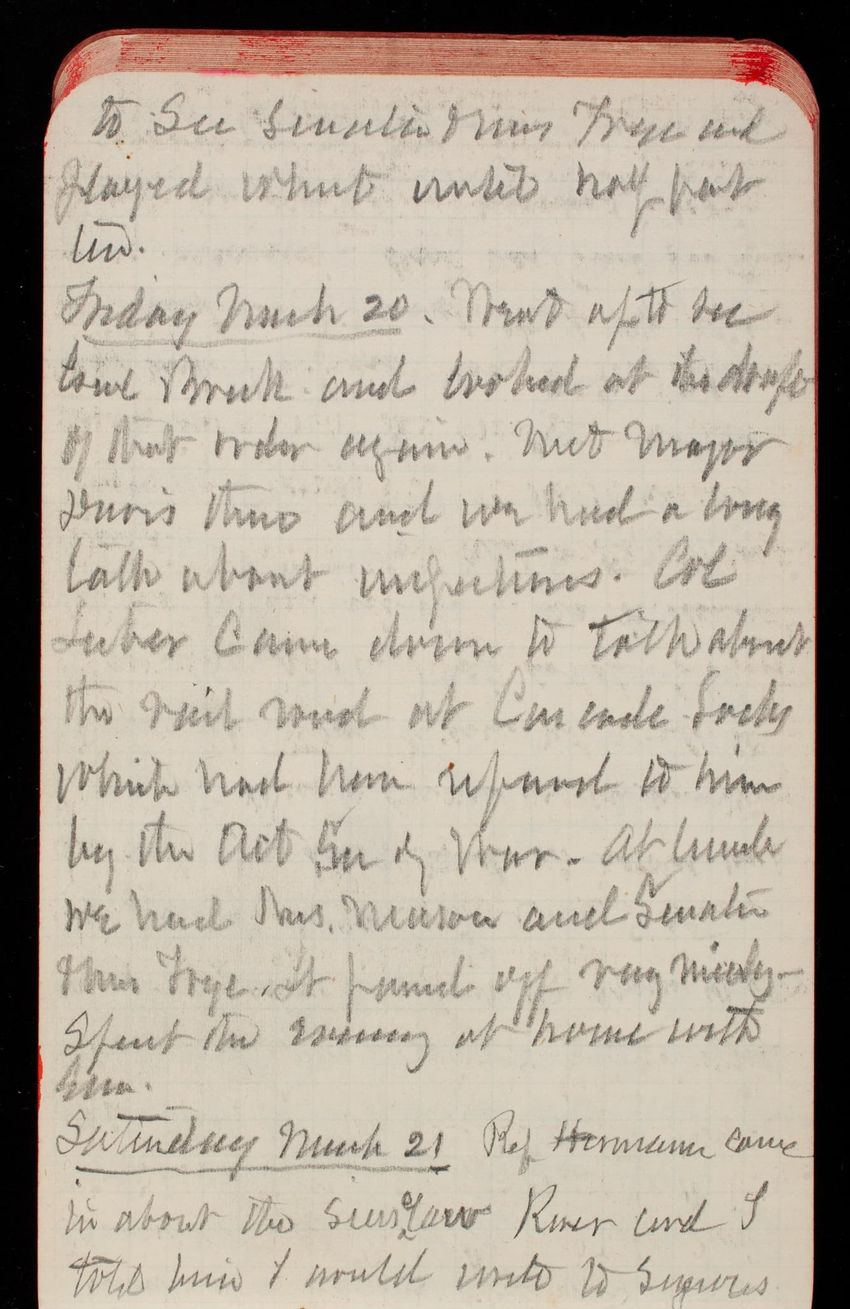 to See Senator & Mrs Frye and
played whist until half past
ten.
Friday March 20. Went up to see
Breck and looked at the draft
of that order again. Met Major
Davis there and we had a long
talk about inspections. Col
Lieber Came down to talk about
the rail road at Cascade Locks
which had been referred to him
by the Act Sec of War. At lunch
we had Mrs. Mason and Senator
& Mrs Frye. It passed off very nicely-
Spent the evening at home with
Saturday March 21 Rep Hermann came
in about the Siuslaw River and I
told him I would write to Symons